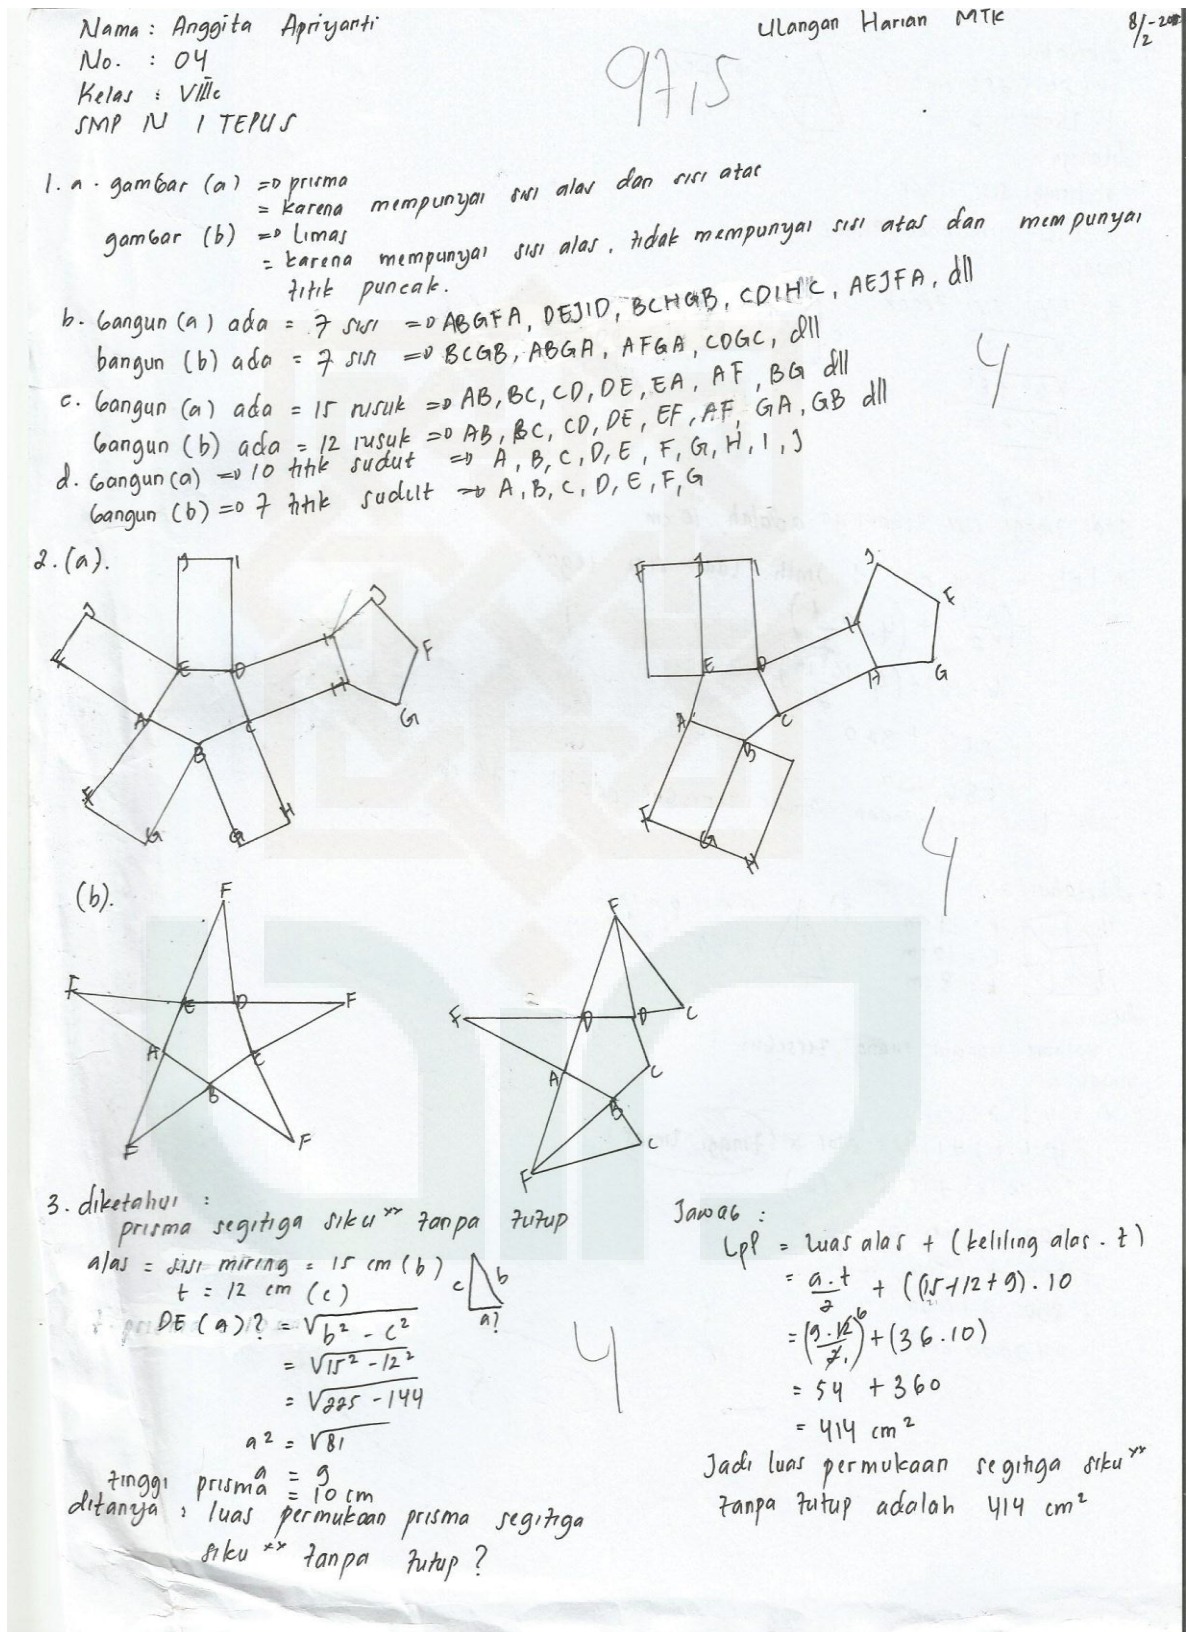 Nama : Anggita Apriyanti
No. : 04
Kelas : VIIIc
SMP N 1 TEPUS
Ulangan Harian MTK
97,5
1. a. gambar (a) => prisma
= karena mempunyai sisi alas dan sisi atas
gambar (b) => Limas
= karena mempunyai sisi alas, tidak mempunyai sisi atas dan mempunyai
titik puncak.
b. bangun (a) ada = 7 sisi => ABGFA, DEJID, BCHGB, CDIHC, AEJFA, dll
bangun (b) ada = 7 sisi => BCGB, ABGA, AFGA, CDGC, dll
4
c. bangun (a) ada = 15 rusuk => AB, BC, CD, DE, EA, AF, BG dll
bangun (b) ada = 12 rusuk => AB, BC, CD, DE, EF, AF, GA, GB dll
d. bangun (a) => 10 titik sudut => A, B, C, D, E, F, G, H, I, J
bangun (b) => 7 titik sudut => A, B, C, D, E, F, G
2. (a).
J I
J
E D
F
A B C
H
G
F G G H
F J I
J
F
E D
H G
A B C
F G H
4
(b).
F
F E D F
A C
B
F F
F
F D D C
A C
B
C
F
3. diketahui :
prisma segitiga siku xx tanpa tutup
alas = sisi miring = 15 cm (b)
t = 12 cm (c)
c b
a?
DE (a)? = √b² - c²
= √15² - 12²
= √225 - 144
a² = √81
a = 9
tinggi prisma = 10 cm
ditanya : luas permukaan prisma segitiga
siku xx tanpa tutup ?
4
Jawab :
Lpp = Luas alas + (keliling alas . t)
= a.t/2 + ((15+12+9) . 10
= (9.12/2)6 + (36.10)
= 54 + 360
= 414 cm²
Jadi luas permukaan segitiga siku xx
tanpa tutup adalah 414 cm²